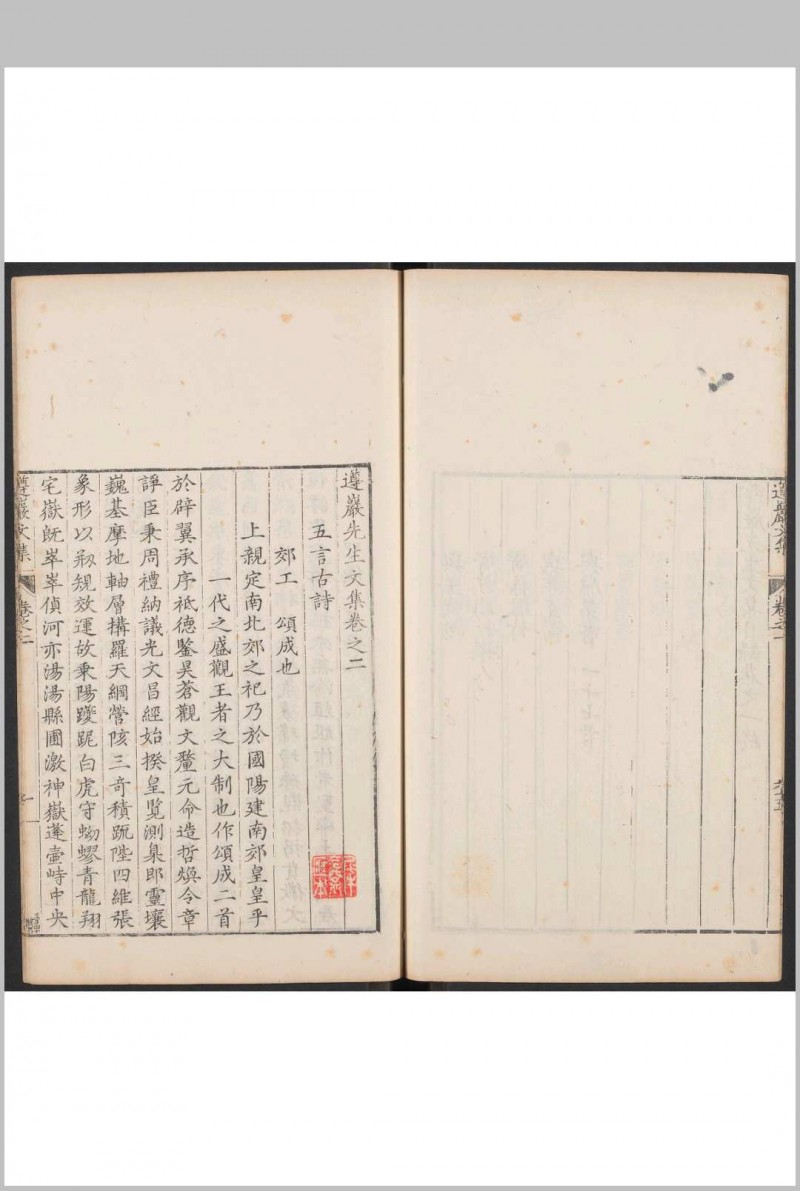 遵巖文集
卷之一
遵巖先生文集卷之二
五言古詩
郊工 頌成也
上親定南北郊之祀乃於國陽建南郊皇皇乎
一代之盛觀王者之大制也作頌成二首
於辟翼承序祗德鑒昊蒼觀文釐元命造哲煥令章
諍臣秉周禮納議光文昌經始揆皇覽測臬郎靈壤
巍基摩地軸層構羅天綱營陔三竒積䟽陛四維張
象形以剏規效運故乗陽躨跜白虎守蚴蟉青龍翔
宅嶽旣崒崒偵河亦湯湯縣圃激神嶽蓬壷峙中央
遵巖文集
卷之二